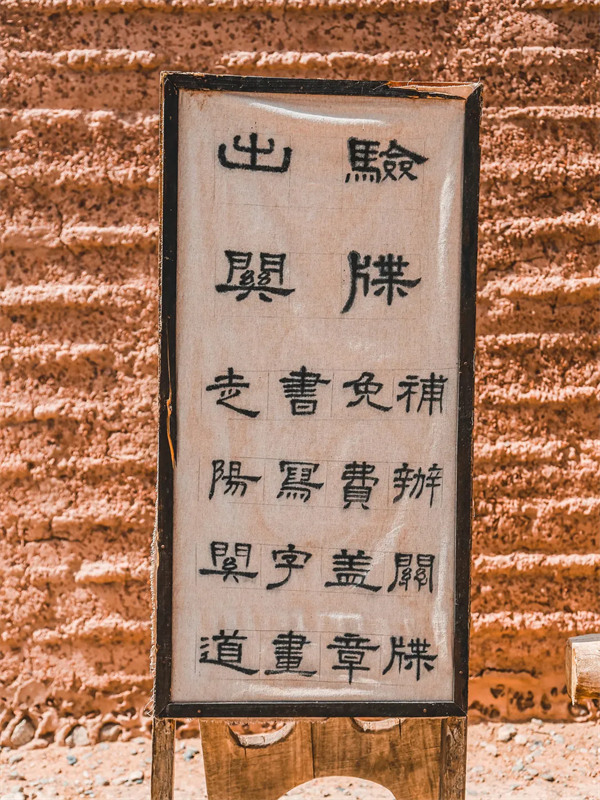 驗牒
出關
補辦關牒
免費盖章
書寫字畫
走陽關道